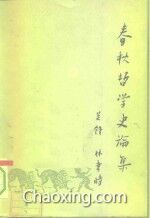 春秋哲学史论集
关锋 林聿时
Chaoxing.com